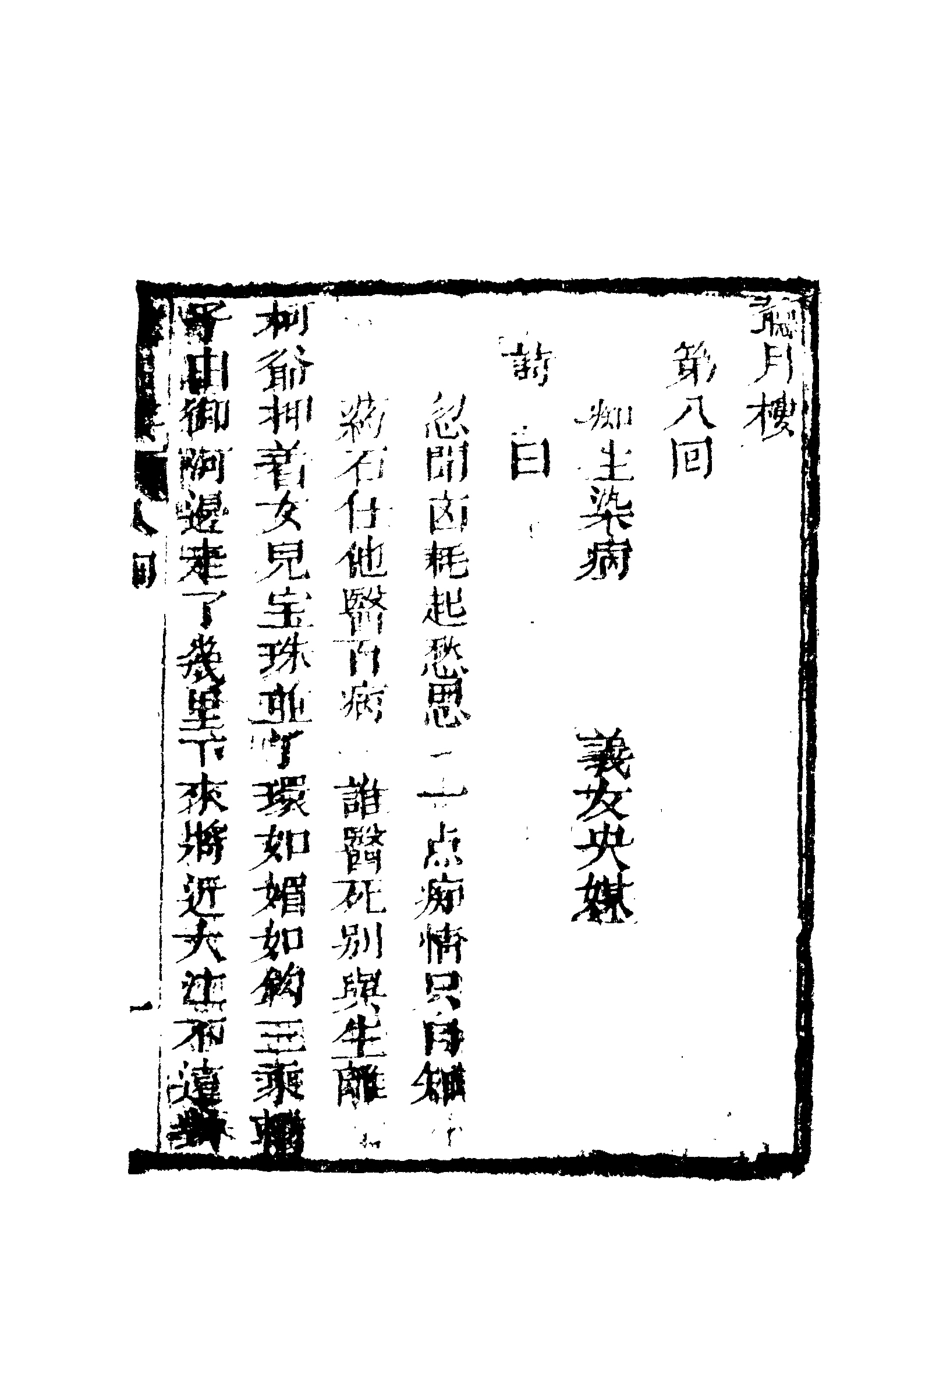 聽月樓
第八回
痴生染病　義友央媒
詩曰
忽聞凶耗起愁思　一点痴情只自知
葯石任他醫百病　誰醫死别與生離
柯爺押着女児宝珠並丫環如媚如鈎三乘轎
子由御河邉走了幾里下來將近大江不遠
八回
一